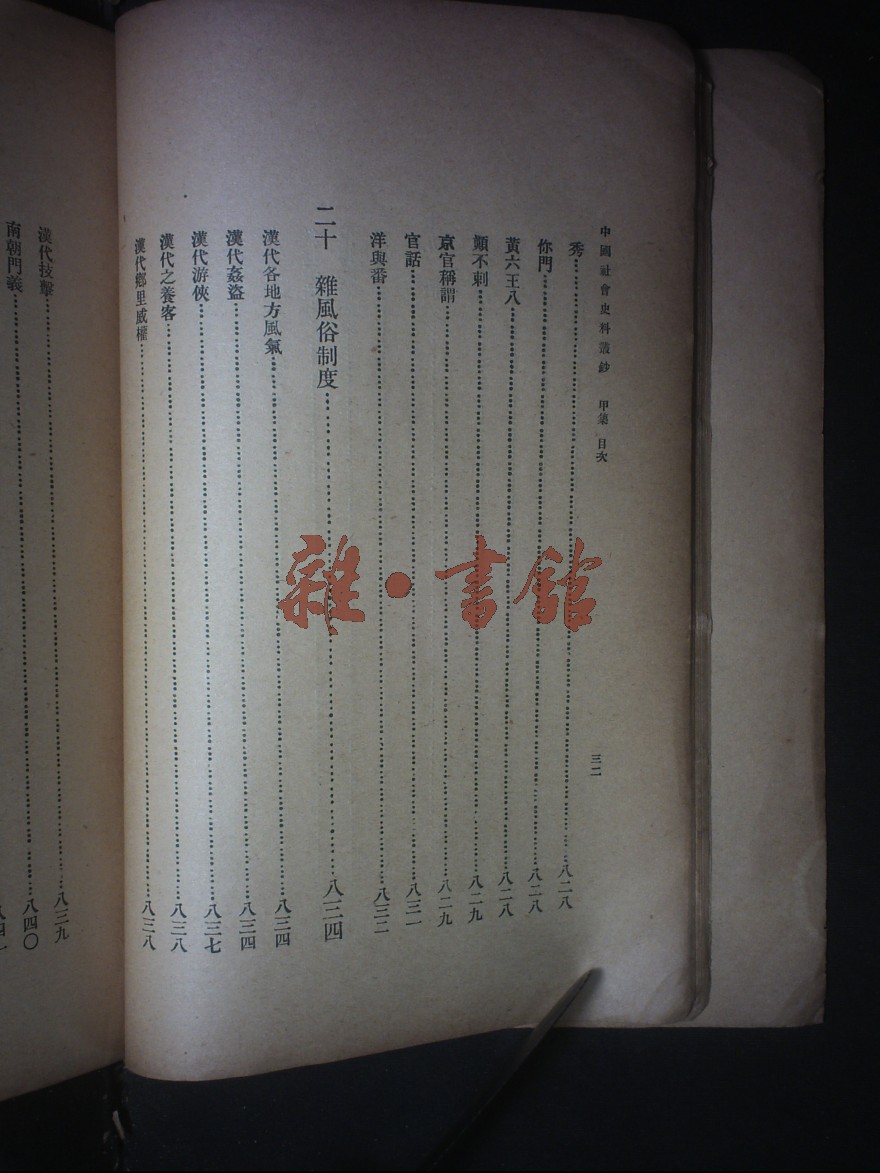 中國社會史料叢鈔 甲集 目次 三二
秀……八二八
你門……八二八
黃六王八……八二八
顛不剌……八二九
京官稱謂……八二九
官話……八三一
洋與番……八三二
二十 雜風俗制度……八三四
漢代各地方風氣……八三四
漢代姦盜……八三四
漢代游俠……八三七
漢代之養客……八三八
漢代鄉里威權……八三八
漢代技擊……八三九
南朝門義……八四〇
雜·書館